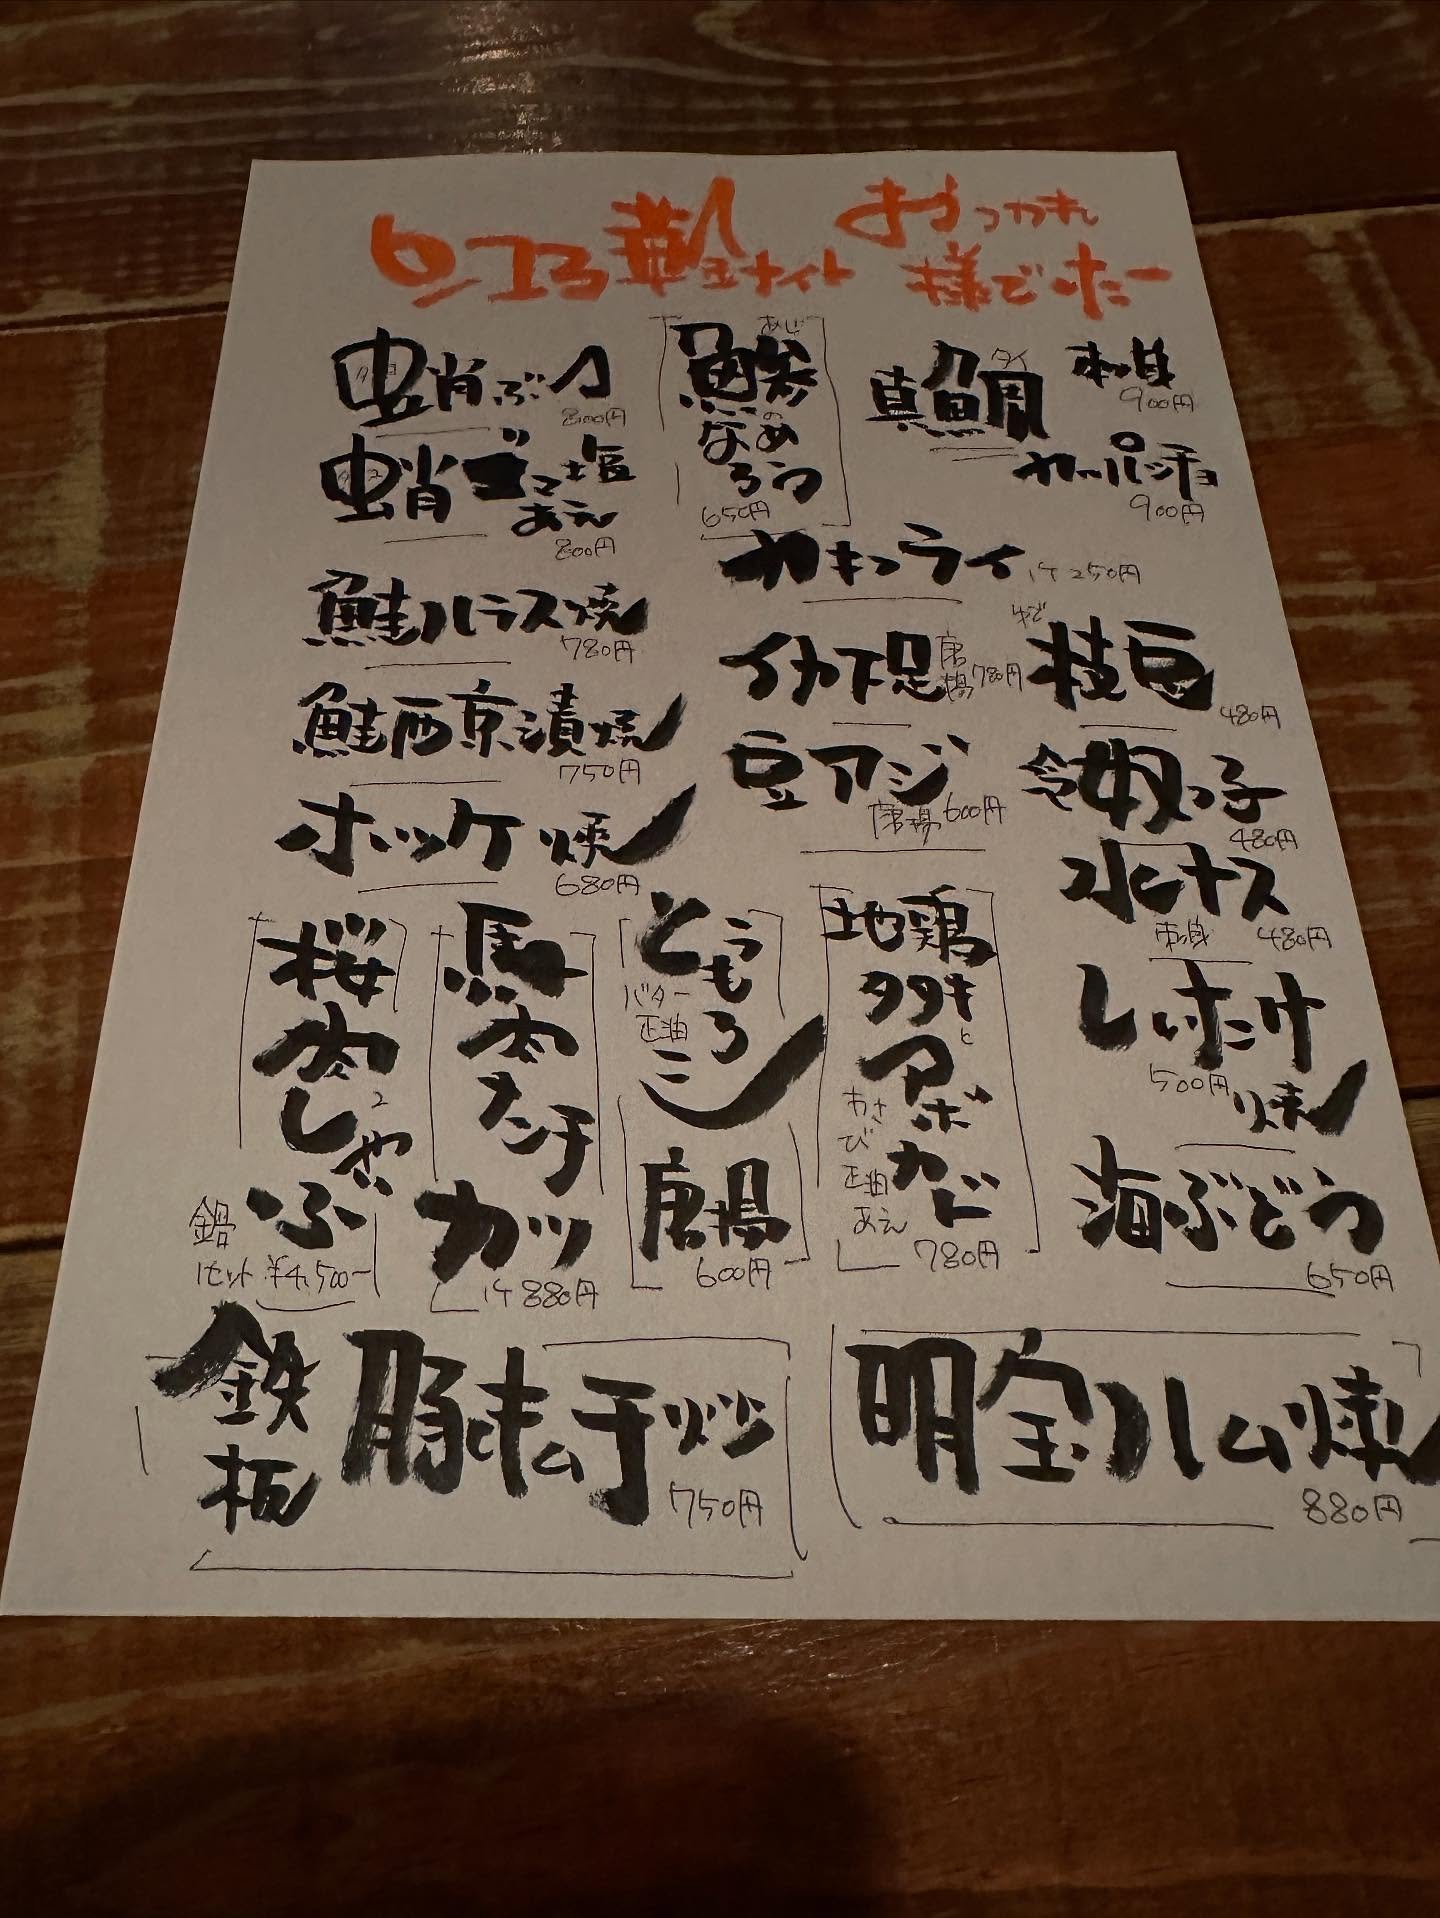 おつかれ
様でしたー
蛸ぶつ
タコ
800円
蛸ゴマ塩
あえ
タコ
800円
鮭ハラス焼
780円
鮭西京漬焼
750円
ホッケ焼
680円
鯵
あじ
のなめ
ろう
650円
真鯛
タイ
刺身
900円
カルパッチョ
900円
カキフライ
1ケ250円
イカ下足
唐揚
780円
豆アジ
唐揚600円
ゆで
枝豆
480円
冷奴っ子
480円
水ナス
刺身 480円
しいたけ
焼
500円
海ぶどう
650円
桜肉しゃぶ
鍋
1セット ¥4,500-
馬肉メンチカツ
1ケ880円
とうもろこし
バター
正油
唐揚
600円
地鶏タタキとアボカド
わさび正油あえ
780円
鉄板
豚キムチ炒
750円
明宝ハム焼
880円